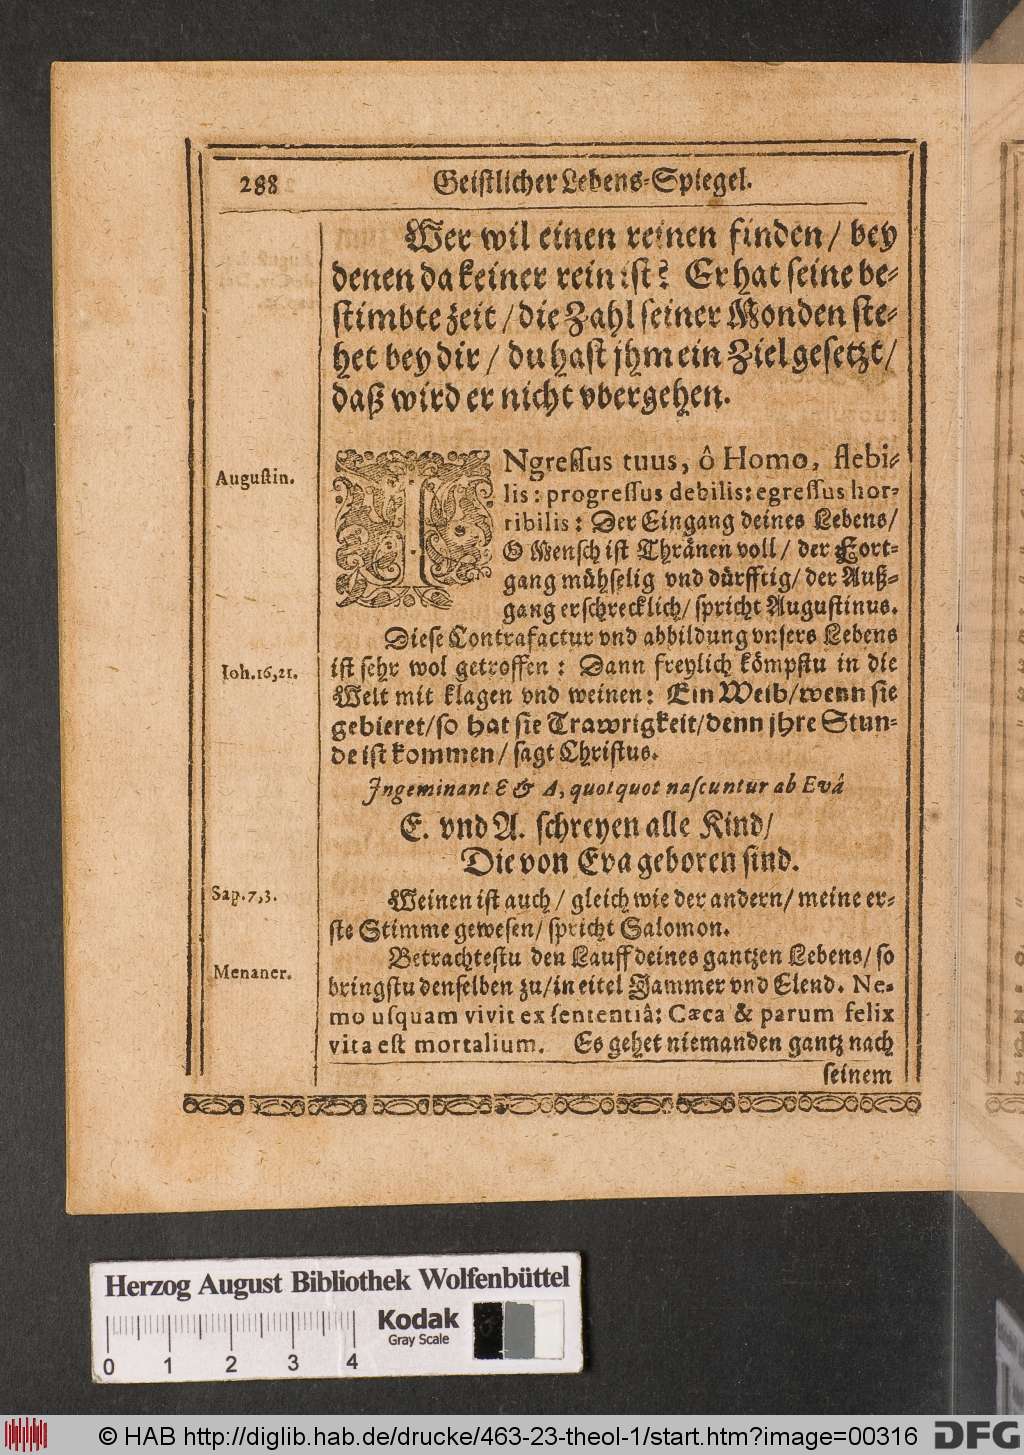 288 Geistlicher Lebens-Spiegel.
Wer wil einen reinen finden / bey
denen da keiner rein ist? Er hat seine be-
stimbte zeit / die Zahl seiner Monden ste-
het bey dir / du hast jhm ein Ziel gesetzt /
daß wird er nicht vbergehen.
Augustin.
INgressus tuus, ô Homo, flebi-
lis: progressus debilis: egressus hor-
ribilis: Der Eingang deines Lebens /
O Mensch ist Thränen voll / der Fort-
gang mühselig vnd dürfftig / der Auß-
gang erschrecklich / spricht Augustinus.
Diese Contrafactur vnd abbildung vnsers Lebens
Joh. 16, 21.
ist sehr wol getroffen: Dann freylich kömpstu in die
Welt mit klagen vnd weinen: Ein Weib / wenn sie
gebieret / so hat sie Trawrigkeit / denn jhre Stun-
de ist kommen / sagt Christus.
Ingeminant E & A, quotquot nascuntur ab Evâ
E. vnd A. schreyen alle Kind /
Die von Eva geboren sind.
Sap. 7, 3.
Weinen ist auch / gleich wie der andern / meine er-
ste Stimme gewesen / spricht Salomon.
Betrachtestu den Lauff deines gantzen Lebens / so
Menaner.
bringstu denselben zu / in eitel Jammer vnd Elend. Ne-
mo usquam vivit ex sententiâ: Cæca & parum felix
vita est mortalium. Es gehet niemanden gantz nach
seinem
Herzog August Bibliothek Wolfenbüttel
Kodak
Gray Scale
0 1 2 3 4
© HAB http://diglib.hab.de/drucke/463-23-theol-1/start.htm?image=00316
DFG